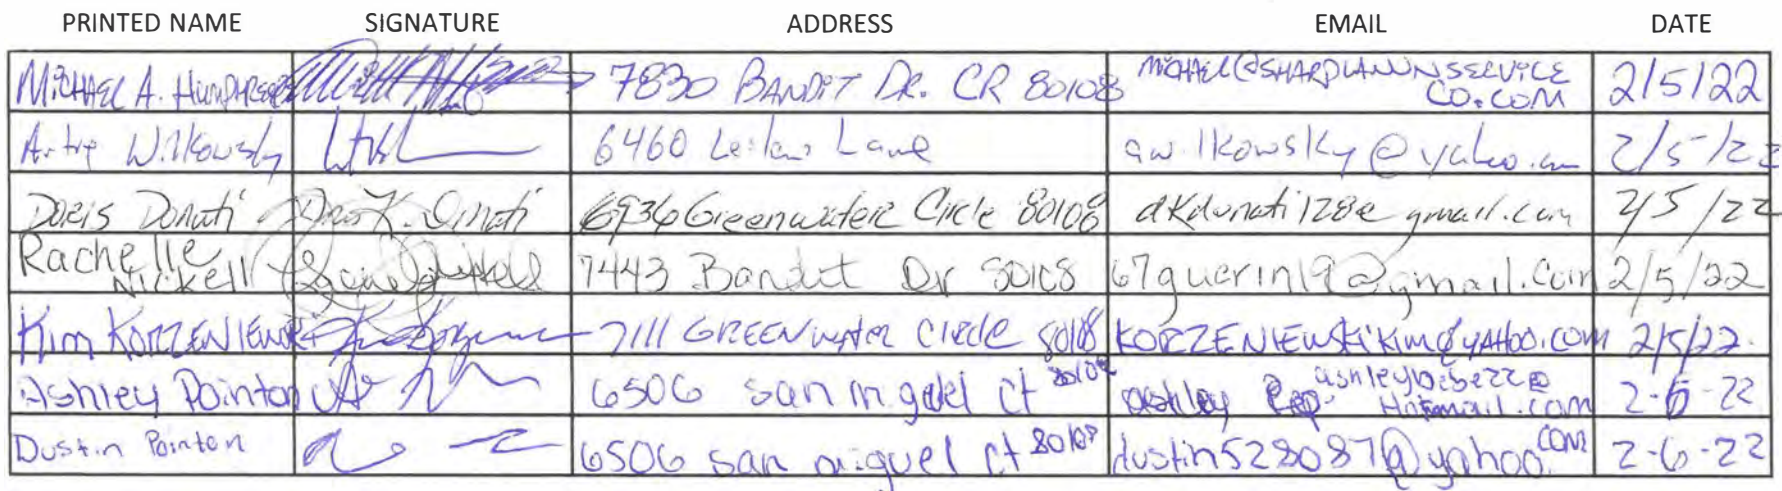 PRINTED NAME SIGNATURE ADDRESS EMAIL DATE
MICHAEL A. 7830 BANDIT DR. CR 80108 2/5/22
CO.COM
Wilkowsky 6460 Lane awilkowsky@yahoo.com 2/5/22
DORIS Donati Donati 6936 Greenwater Circle 80108 dkdonati128@gmail.com 2/5/22
Rachelle
Nickell 7443 Bandit Dr 80108 67guerin19@gmail.com 2/5/22
Kim KORZENIEWSKI 7111 GREENWATER CIRCLE 80108 KORZENIEWSKIKIM@YAHOO.COM 2/5/22.
Ashley Pointon 6506 san migel ct 80108 ashley 2-6-22
Hotmail.com
Dustin Pointon 6506 san miguel ct 80108 dustin528087@yahoo.com 2-6-22